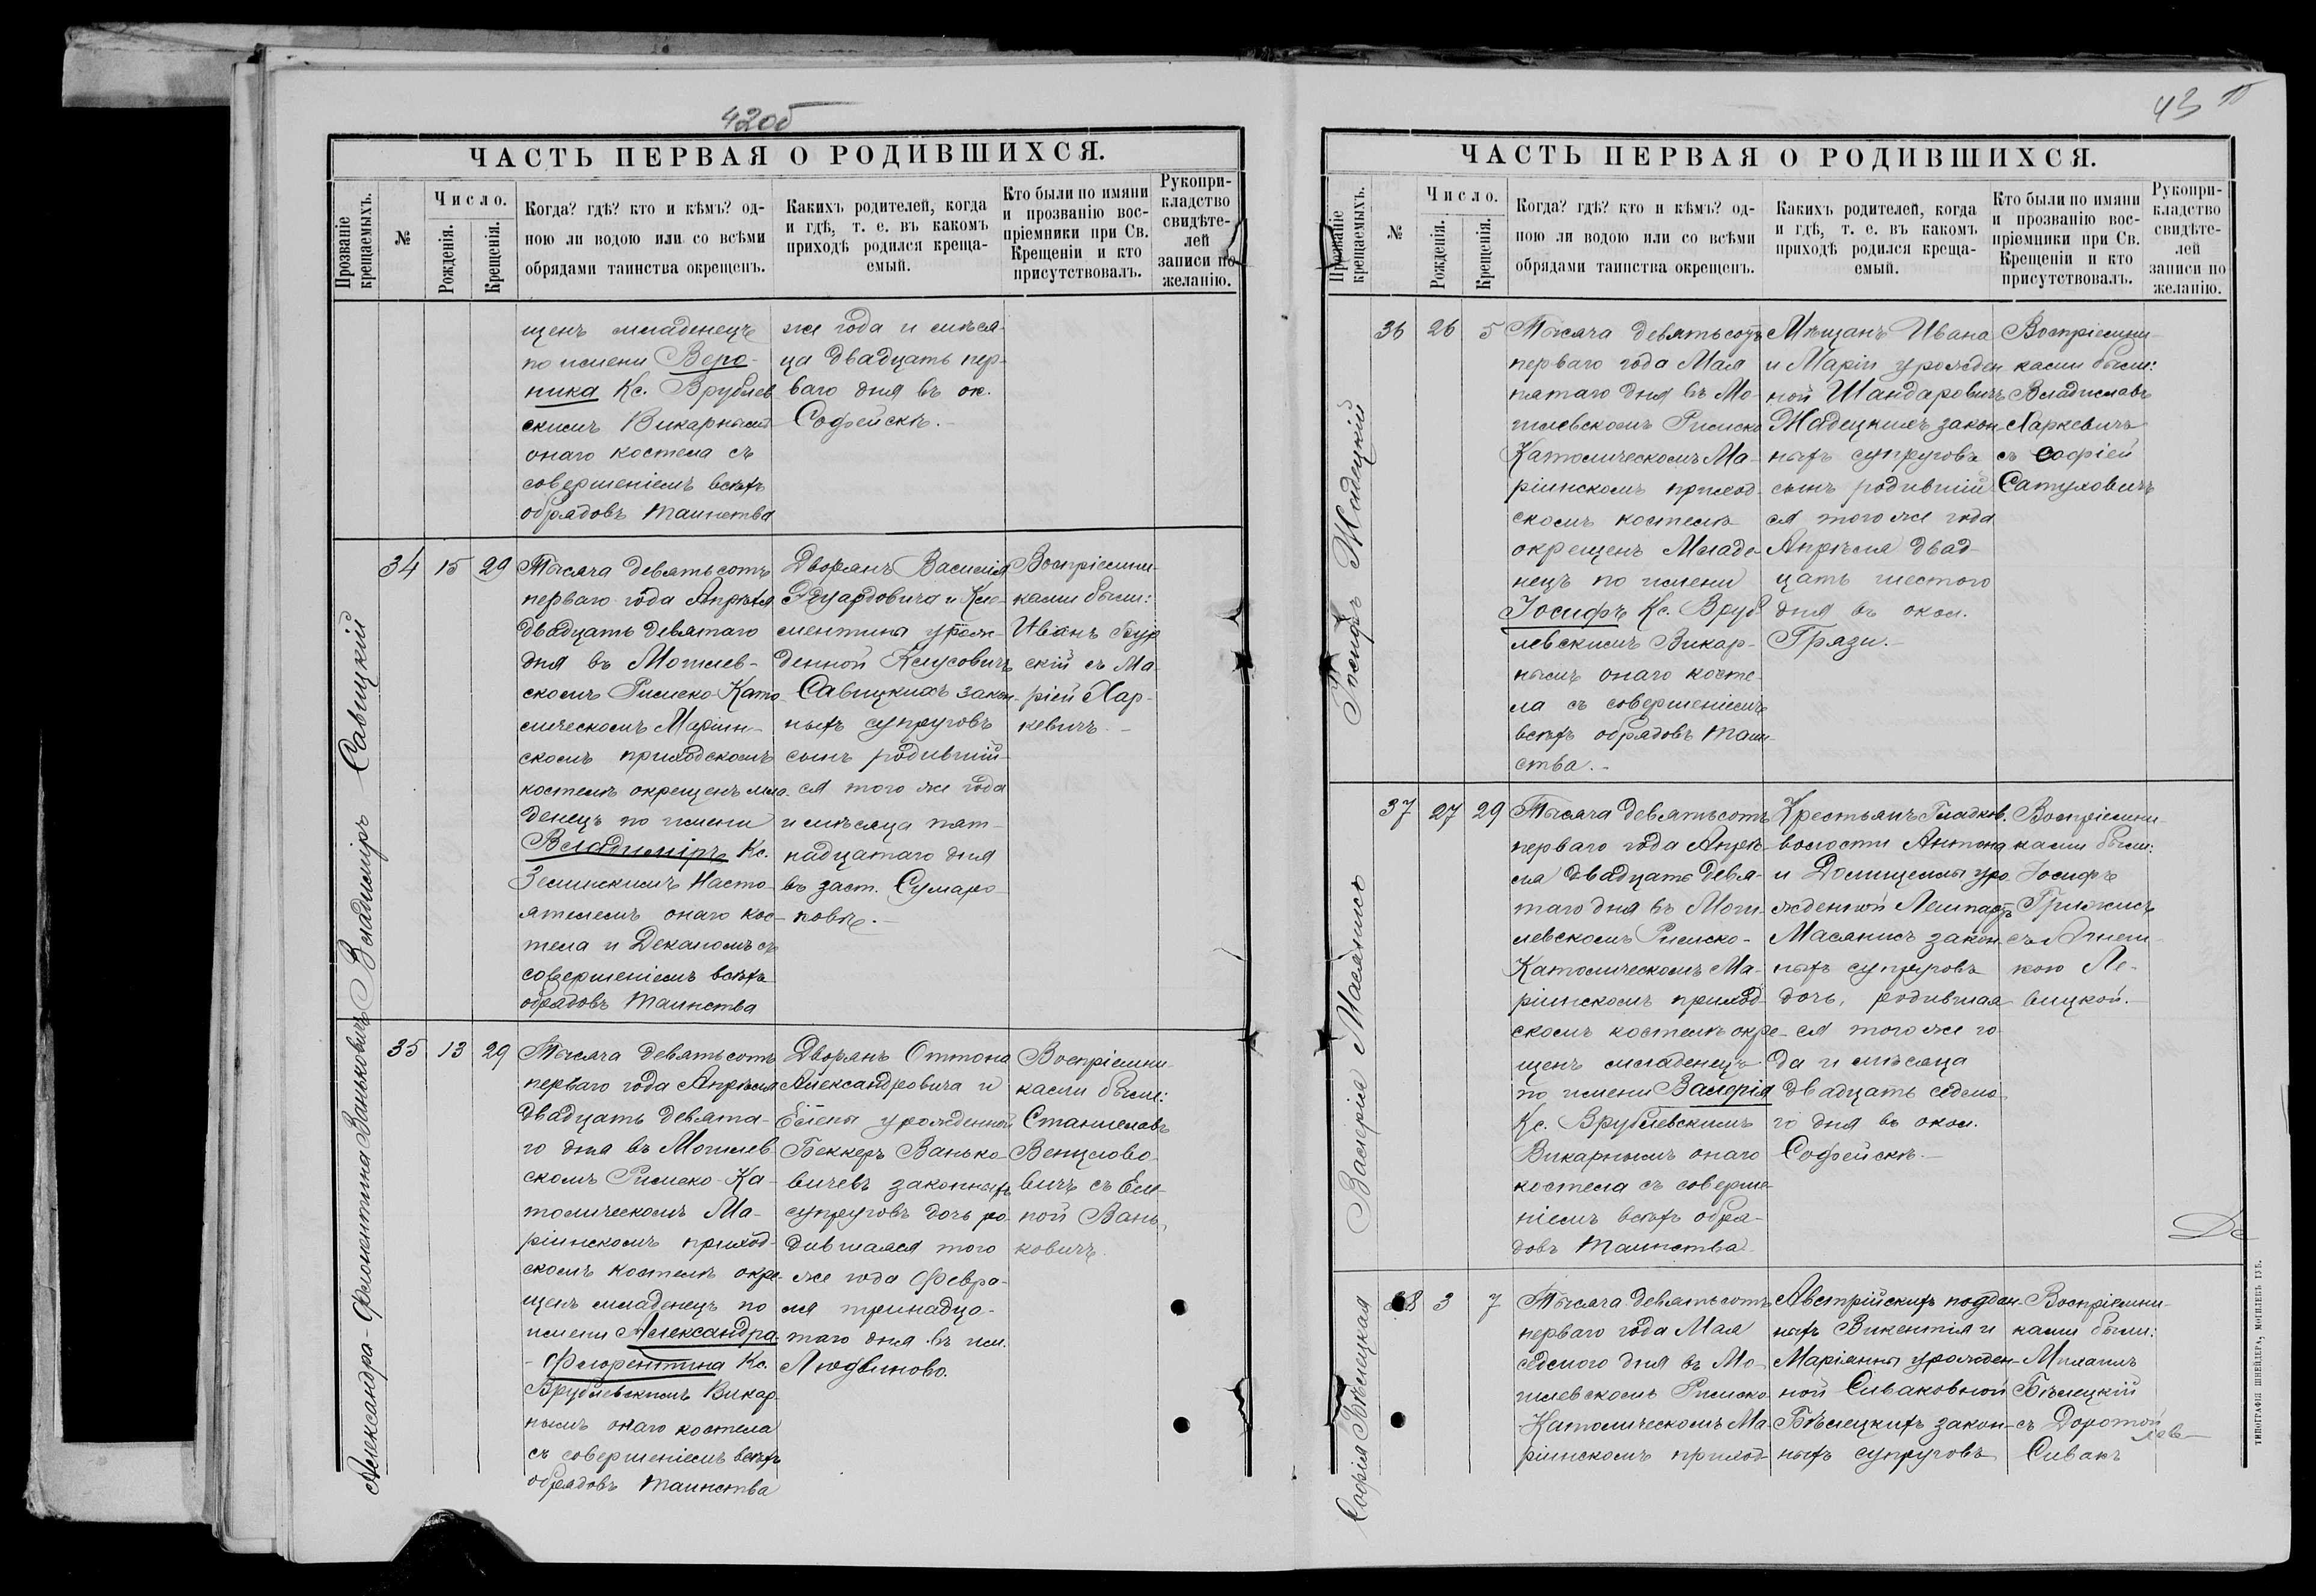 42об
ЧАСТЬ ПЕРВАЯ О РОДИВШИХСЯ.
Прозваніе крещаемыхъ.
№
Число.
Рожденія.
Крещенія.
Когда? гдѣ? кто и кѣмъ? од-
ною ли водою или со всѣми
обрядами таинства окрещенъ.
Какихъ родителей, когда
и гдѣ, т. е. въ какомъ
приходѣ родился креща-
емый.
Кто были по имяни
и прозванію вос-
пріемники при Св.
Крещеніи и кто
присутствовалъ.
Рукопри-
кладство
свидѣте-
лей
записи по
желанію.
щенъ младенецъ
по имени Веро-
ника Кс. Врублев
скимъ Викарнымъ
онаго костела съ
совершеніемъ всѣхъ
обрядовъ таинства
же года и мѣся-
ца двадцать пер-
ваго дня въ ок.
Софейскѣ.-
Владиміръ Савицкій
34
15
29
Тысяча девятьсотъ
перваго года Апрѣля
двадцать девятаго
дня въ Могилев-
скомъ Римско-Като
лическомъ Маріин-
скомъ приходскомъ
костелѣ окрещенъ мла-
денецъ по имени
Владиміръ Кс.
Землинскимъ Насто-
ятелемъ онаго кос-
тела и Деканомъ съ
совершеніемъ всѣхъ
обрядовъ таинства
Дворянъ Василія
Эдуардовича и Кле-
ментины урож-
денной Клусовичъ
Савицкихъ закон-
ныхъ супруговъ
сынъ родившій-
ся того же года
и мѣсяца пят-
надцатаго дня
въ заст. Сумаро-
ковѣ.-
Воспріемни-
ками были:
Иванъ Бур
скій съ Ма-
ріей Хар-
кевичъ.-
Александра-Флорентина Ваньковичъ
35
13
29
Тысяча девятьсотъ
перваго года Апрѣля
двадцать девята-
го дня въ Могилев-
скомъ Римско-Ка-
толическомъ Ма-
ріинскомъ приход-
скомъ костелѣ окре-
щенъ младенецъ по
имени Александра-
-Флорентина Кс.
Врублевскимъ Викар-
нымъ онаго костела
съ совершеніемъ всѣхъ
обрядовъ таинства
Дворянъ Оттона
Александровича и
Елены урожденной
Беккеръ Ванько-
вичевъ законныхъ
супруговъ дочь ро-
дившаяся того
же года Февра-
ля тринадца-
таго дня въ им.
Людвиново.
Воспріемни-
ками были:
Станиславъ
Венцлово-
вичъ съ Еле-
ной Вань-
ковичъ.
43
ЧАСТЬ ПЕРВАЯ О РОДИВШИХСЯ.
Прозваніе крещаемыхъ.
№
Число.
Рожденія.
Крещенія.
Когда? гдѣ? кто и кѣмъ? од-
ною ли водою или со всѣми
обрядами таинства окрещенъ.
Какихъ родителей, когда
и гдѣ, т. е. въ какомъ
приходѣ родился креща-
емый.
Кто были по имяни
и прозванію вос-
пріемники при Св.
Крещеніи и кто
присутствовалъ.
Рукопри-
кладство
свидѣте-
лей
записи по
желанію.
Іосифъ Жадецкій
36
26
5
Тысяча девятьсотъ
перваго года Мая
пятаго дня въ Мо-
гилевскомъ Римско
Католическомъ Ма-
ріинскомъ приход-
скомъ костелѣ
окрещенъ Младе-
нецъ по имени
Іосифъ Кс. Вруб
левскимъ Викар-
нымъ онаго косте-
ла съ совершеніемъ
всѣхъ обрядовъ таин-
ства.-
Мѣщанъ Ивана
и Маріи урожден-
ной Шандаровичъ
Жадецкихъ закон-
ныхъ супруговъ
сынъ родившій
ся того же года
Апрѣля двад-
цать шестого
дня въ окол.
Грязи.-
Воспріемни-
ками были:
Владиславъ
Харкевичъ
съ Софіей
Сатуховичъ
Валерія Масянисъ
37
27
29
Тысяча девятьсотъ
перваго года Апрѣ-
ля двадцать девя-
таго дня въ Моги-
левскомъ Римско-
Католическомъ Ма-
ріинскомъ приход-
скомъ костелѣ окре-
щенъ младенецъ
по имени Валерія
Кс. Врублевскимъ
Викарнымъ онаго
костела съ соверше-
ніемъ всѣхъ обря-
довъ таинства
Крестьянъ Гладков.
волости Антона
и Домицелы уро-
жденной Лемпартъ
Масянисъ закон-
ныхъ супруговъ
дочь, родившая
ся того же го-
да и мѣсяца
двадцать седьмо
го дня въ окол.
Софейскѣ.-
Воспріемни-
ками были:
Іосифъ
Грижисъ
съ Агнеш-
кою Ле-
вицкой.-
Софія Бѣлецкая
38
3
7
Тысяча девятьсотъ
перваго года Мая
седьмого дня въ Мо-
гилевскомъ Римско
Католическомъ Ма-
ріинскомъ приход-
Австрійскихъ поддан-
ныхъ Викентія и
Маріанны урожден-
ной Сиваковной
Бѣлецкихъ закон-
ныхъ супруговъ
Воспріемни-
ками были:
Михаилъ
Бѣлецкій
съ Доротой
Сивакъ
ТИПОГРАФІЯ ШНЕЙДЕРА, МОГИЛЕВЪ ГУБ.